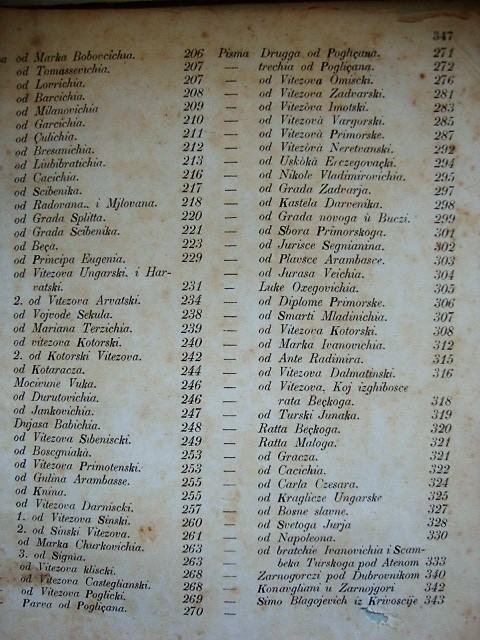 347
od Marka Bobovcichia. 206
od Tomassevichia. 207
od Lovrichia. 207
od Barcichia. 208
od Milanovichia 209
od Garcichia. 210
od Çulichia. 211
od Bresanichia. 212
od Liubibratichia. 213
od Cacichia. 216
od Scibenika. 217
od Radovana.. i Mjlovana. 218
od Grada Splitta. 220
od Grada Scibenika. 221
od Beça. 223
od Principa Eugenia. 229
od Vitezova Ungarski. i Har-
vatski. 231
2. od Vitezova Arvatski. 234
od Vojvode Sekula. 238
od Mariana Terzichia. 239
od vitezova Kotorski. 240
2. od Kotorski Vitezova. 242
od Kotaracza. 244
Mocivune Vuka. 246
od Durutovichia. 246
od Jankovichia. 247
Dujasa Babichia. 248
od Vitezova Sibeniscki. 249
od Boscgniakà 253
od Vitezova Primotenski. 253
od Gulina Arambasse. 255
od Knina. 255
od Vitezova Darniscki. 257
1. od Vitezova Sinski. 260
2. od Sinski Vitezova. 261
od Marka Churkovichia. 263
3. od Signia. 263
od Vitezova kliscki. 268
od Vitezova Casteglianski. 268
od Vitezova Poglicki. 269
Parva od Pogliçana. 270
Pisma Drugga od Pogliçana. 271
— trechia od Pogliçana. 272
— od Vitezova Omiscki. 276
— od Vitezova Zadvarski. 281
— od Vitezòva Imotski. 283
— od Vitezovà Vargorski. 285
— od Vitezova Primorske. 287
— od Vitezòvà Neretvanski. 292
— od Uskòkà Erczegovaçki. 294
— od Nikole Vladimirovichia. 295
— od Grada Zadvarja. 297
— od Kastela Darvenika. 298
— od Grada novoga ù Buczi. 299
— od Sbora Primorskoga. 301
— od Jurisce Segnianina. 302
— od Plavsce Arambasce. 303
— od Jurasa Veichia. 304
— Luke Oxegovichia. 305
— od Diplome Primorske. 306
— od Smarti Mladinichia. 307
— od Vitezova Kotorski. 308
— od Marka Ivanovichia. 312
— od Ante Radimira. 315
— od Vitezova Dalmatinski. 316
— od Vitezova, Koj izghibosce
rata Beçkoga. 318
— od Turski Junaka. 319
— Ratta Beçkoga. 320
— Ratta Maloga. 321
— od Gracza. 321
— od Cacichia. 322
— od Carla Czesara. 324
— od Kraglicze Ungarske 325
— od Bosne slavne. 327
— od Svetoga Jurja 328
— od Napoleona. 330
— od bratchie Ivanovichia i Scam-
beka Turskoga pod Atenom 333
— Zarnogorczi pod Dubrovnikom 340
— Konavgliani u Zarnojgori 342
— Simo Blagojevich iz Krivoscije 343